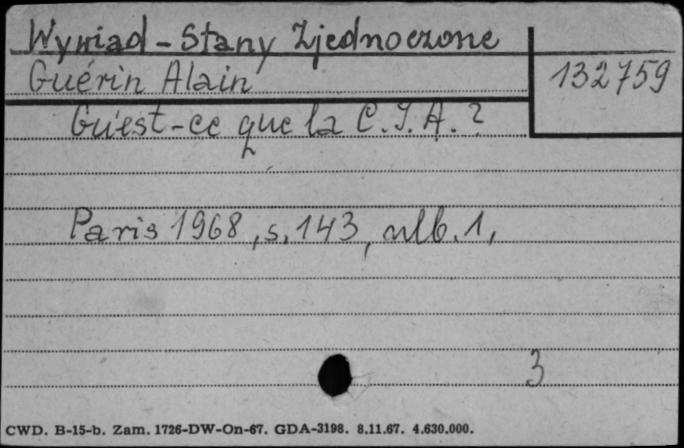 Wywiad - Stany Zjednoczone
Guérin Alain
132759
Gu'est-ce que la C.I.A.?
Paris 1968, s. 143, nlb. 1,
3
CWD. B-15-b. Zam. 1726-DW-On-67. GDA-3198. 8.11.67. 4.630.000.